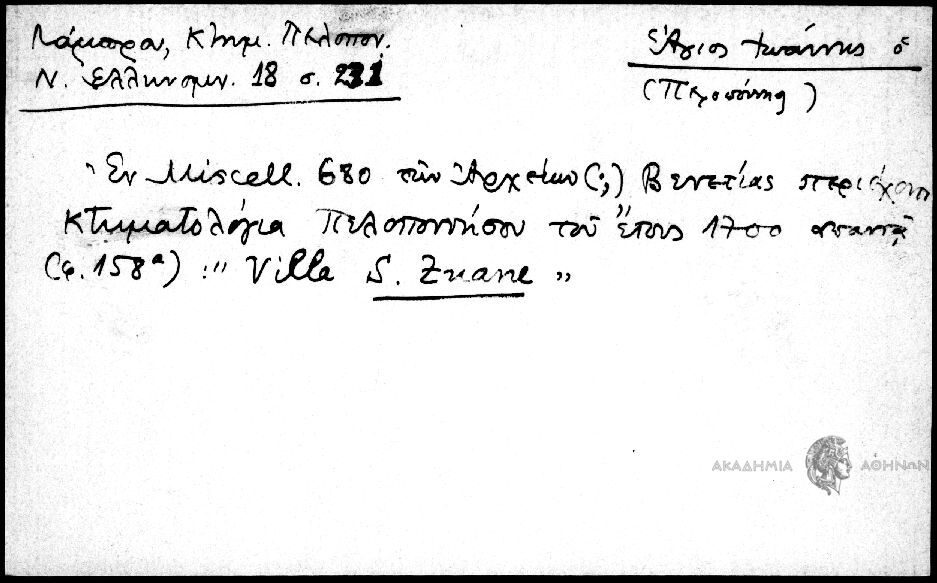 Λάμπρου, Κτημ. Πελοπον.
Ν. Ἑλληνομν. 18 σ.
Ἅγιος Ἰωάννης ὁ
(Πελοπόννησος)
Ἐν Miscell. 680 τῶν Ἀρχείων (;) Βενετίας περιέχον
κτηματολόγια Πελοποννήσου τοῦ ἔτους 1700 ἀπαντᾷ
(φ. 158α) : " Villa S. Zuane "
ΑΚΑΔΗΜΙΑ ΑΘΗΝΩΝ